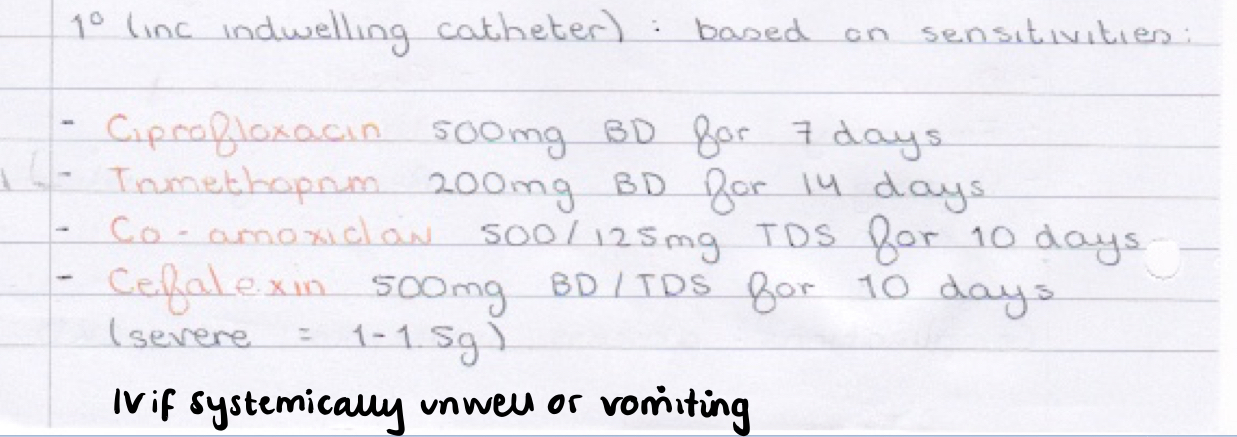 1° (inc indwelling catheter) : based on sensitivities :
- Ciprofloxacin 500mg BD for 7 days
- Trimethoprim 200mg BD for 14 days
- Co-amoxiclav 500/125mg TDS for 10 days
- Cefalexin 500mg BD/TDS for 10 days
(severe = 1-1.5g)
IV if systemically unwell or vomiting